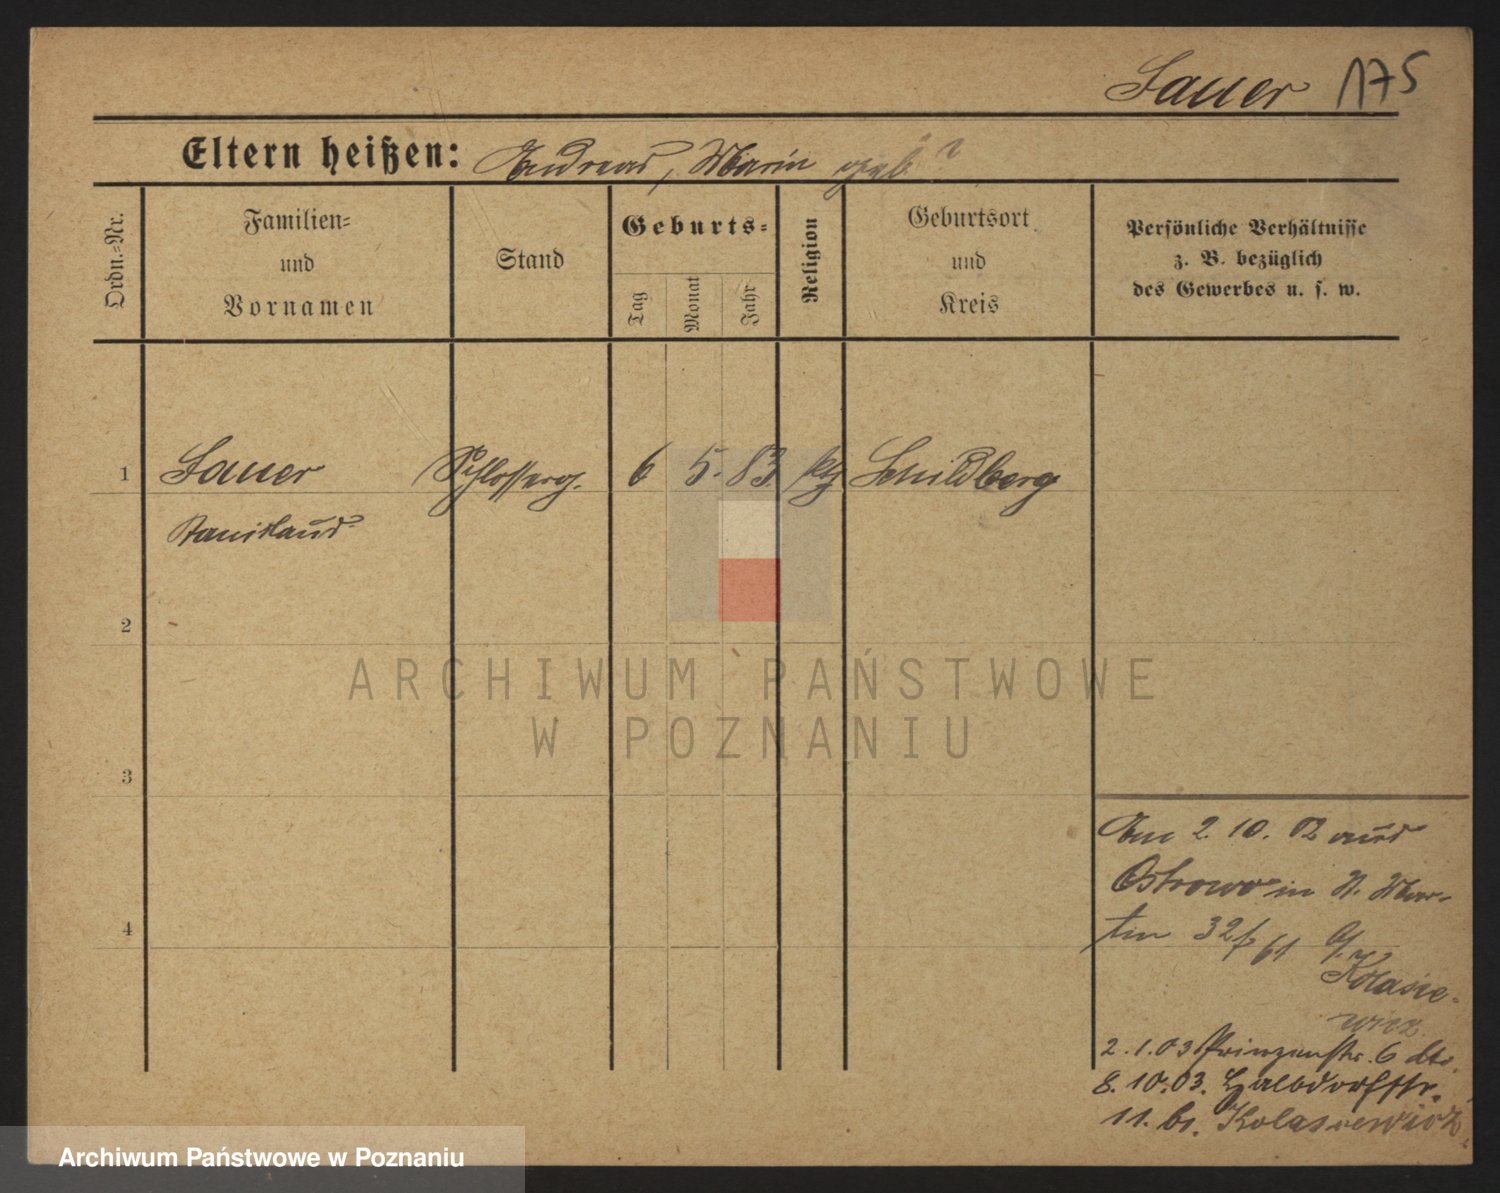 Sauer 175
Eltern heißen: Andreas, Marie geb. ?
Ordn.-Nr.
Familien-
und
Vornamen
Stand
Geburts-
Tag
Monat
Jahr
Religion
Geburtsort
und
Kreis
Persönliche Verhältnisse
z. B. bezüglich
des Gewerbes u. s. w.
1 Sauer Schlosserg. 6 5. 83 ktz Schildberg
Stanislaus
2
3
4
Am 2. 10. 02 aus
Ostrowo in St. Mar-
tin 32
Kolasie-
wicz
2.1.03 Prinzenstr. 6 dto.
8.10.03. Halbdorfstr.
11. bs. Kolasiewicz
ARCHIWUM PAŃSTWOWE
W POZNANIU
Archiwum Państwowe w Poznaniu